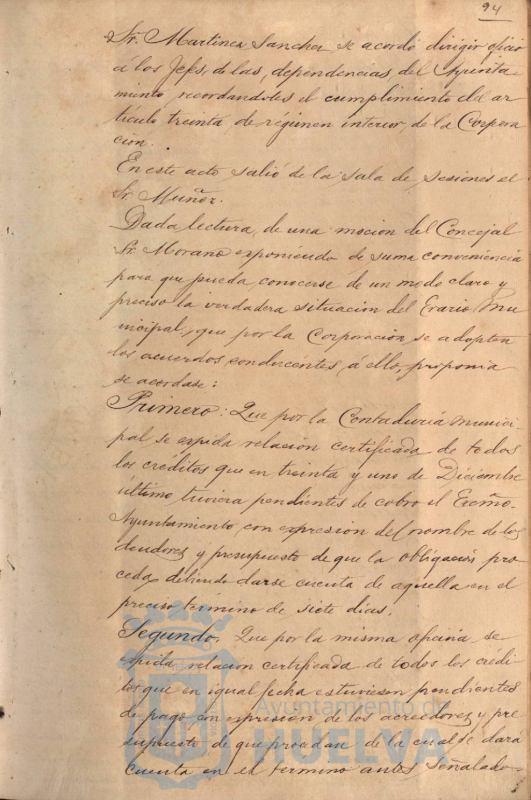 94
Sr. Martinez Sanchez se acordó dirigir oficio
á los Jefes de las dependencias del Ayunta
miento, recordandoles el cumplimiento del ar
tículo treinta de régimen interior, de la Corpora
ción.
En este acto salió de la sala de sesiones el
Sr Muñoz.
Dada lectura de una mocion del Concejal
Sr. Morano exponiendo de suma conveniencia
para que pueda conocerse de un modo claro y
preciso la verdadera situacion del Erario Mu
nicipal, que por la Corporación se adopten
los acuerdos conducentes á ello, proponia
se acordase:
Primero: Que por la Contaduría Munici
pal se expida relacion certificada de todos
los créditos que en treinta y uno de Diciembre
último, tuviera pendientes de cobro el Excmo.
Ayuntamiento, con expresion del nombre de los
deudores y presupuesto de que la obligación pro
ceda, debiendo darse cuenta de aquella en el
preciso término de siete dias.
Segundo. Que por la misma oficina se
expida relacion certificada de todos los crédi
tos que en igual fecha estuviesen pendientes
de pago con expresion de los acreedores y pre
supuesto de que procedan de la cual se dará
cuenta en el término antes señalado
Ayuntamiento de
HUELVA